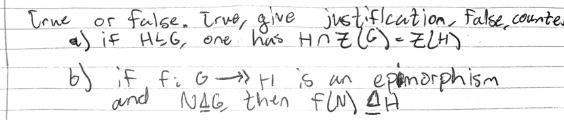 True or false. True, give justification, False, counte
a) if H≤G, one has H∩Z(G) = Z(H)
b) if f: G ↠ H is an epimorphism
and N⊴G, then f(N) ⊴ H